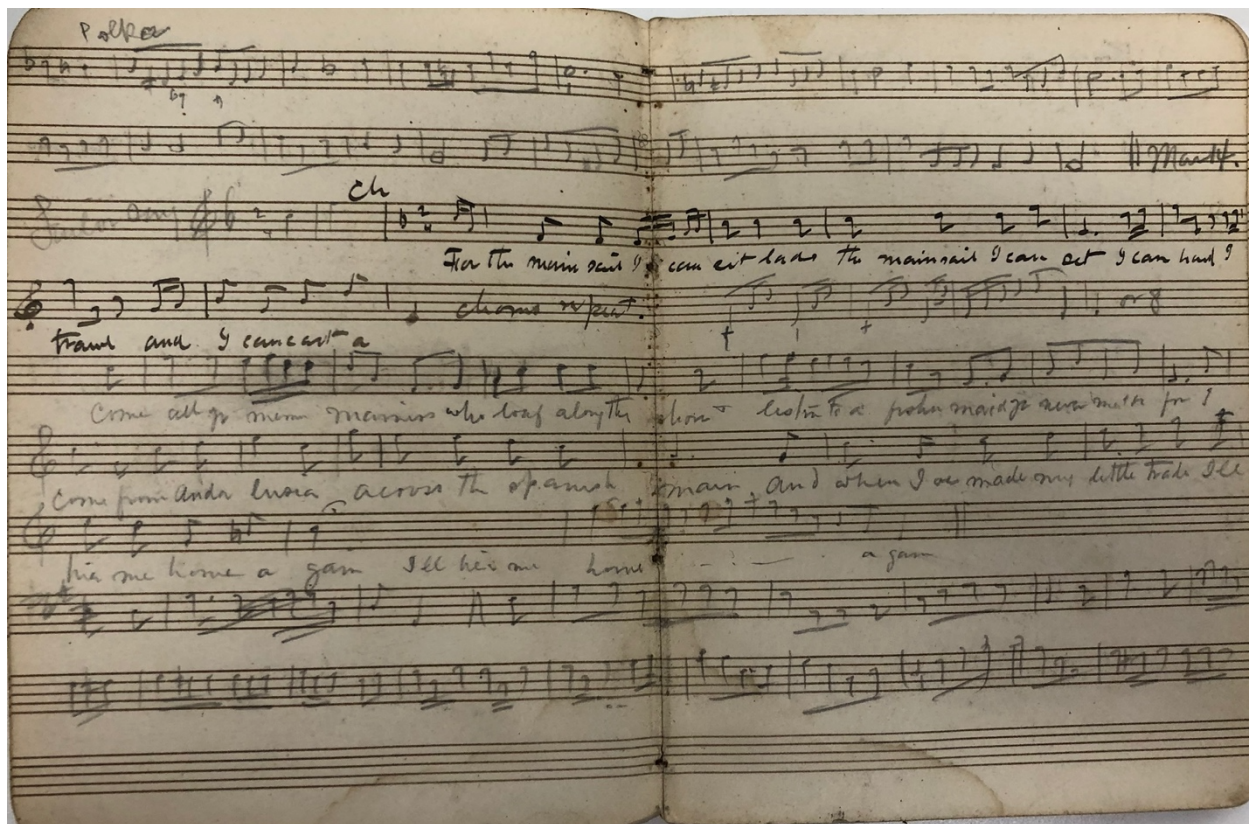 Polka
Sailor Song
Ch
For the main sail I can cit lads the mainsail I can cit I can haul I
trawl and I can cast a
chorus repeat.
Come all ye mariners who loaf along the shore listen to a maid ye never met for I
come from Anda lusia across the spanish main and when I've made my little trade I'll
hie me home a gain I'll hie me home a gain